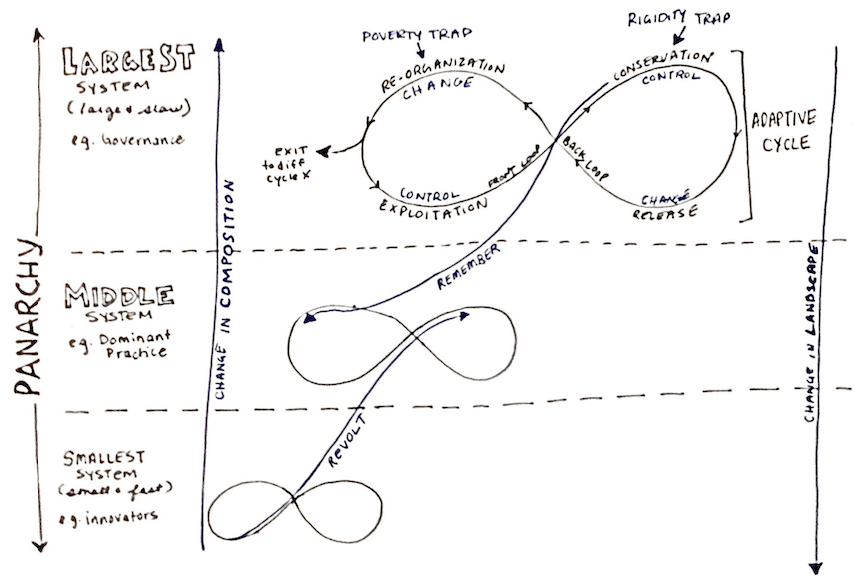 POVERTY TRAP
RIGIDITY TRAP
LARGEST
SYSTEM
(large & slow)
eg. Governance
RE-ORGANIZATION
CHANGE
CONSERVATION
CONTROL
EXIT
to diff
cycle X
CONTROL
EXPLOITATION
FRONT LOOP
BACK LOOP
CHANGE
RELEASE
ADAPTIVE
CYCLE
PANARCHY
CHANGE IN COMPOSITION
REMEMBER
CHANGE IN LANDSCAPE
MIDDLE
SYSTEM
eg. Dominant
Practice
REVOLT
SMALLEST
SYSTEM
(small & fast)
eg. innovators